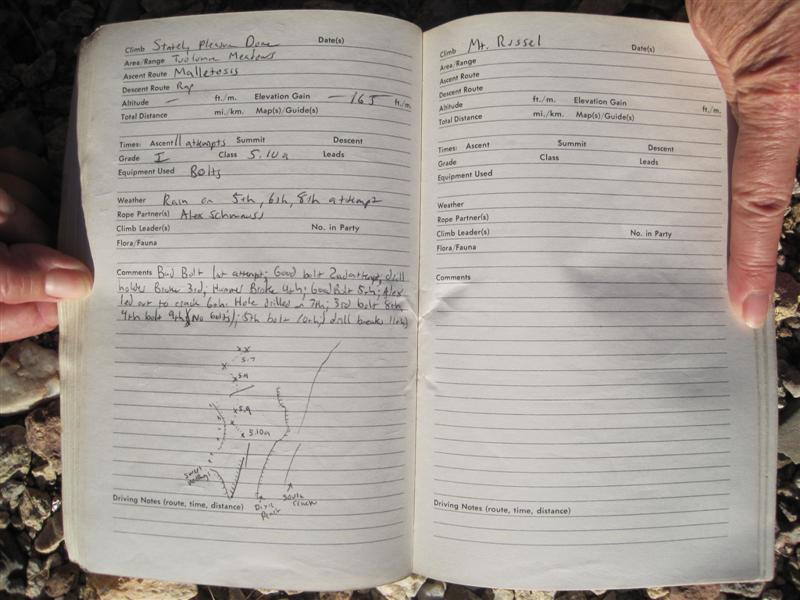 Climb Stately Pleasure Dome Date(s)
Area/Range Tuolumne Meadows
Ascent Route Malletosis
Descent Route Rap
Altitude — ft./m. Elevation Gain ~165 ft./m.
Total Distance mi./km. Map(s)/Guide(s)
Times: Ascent 11 attempts Summit Descent
Grade I Class 5.10a Leads
Equipment Used Bolts
Weather Rain on 5th, 6th, 8th attempt
Rope Partner(s) Alex Schmauss
Climb Leader(s) No. in Party
Flora/Fauna
Comments Bad Bolt 1st attempt; Good bolt 2nd attempt; drill
holder Broke 3rd; Hammer Broke 4th; Good Bolt 5th; Alex
led out to crack 6th. Hole drilled on 7th; 3rd bolt 8th,
4th bolt 9th (No bolts); 5th bolt 10th; drill breaks 11th)
x x
5.7
x 5.9
x 5.9
x 5.10a
Dixie
Peach
South
Crack
Driving Notes (route, time, distance)
Climb Mt. Russel Date(s)
Area/Range
Ascent Route
Descent Route
Altitude ft./m. Elevation Gain ft./m.
Total Distance mi./km. Map(s)/Guide(s)
Times: Ascent Summit Descent
Grade Class Leads
Equipment Used
Weather
Rope Partner(s)
Climb Leader(s) No. in Party
Flora/Fauna
Comments
Driving Notes (route, time, distance)